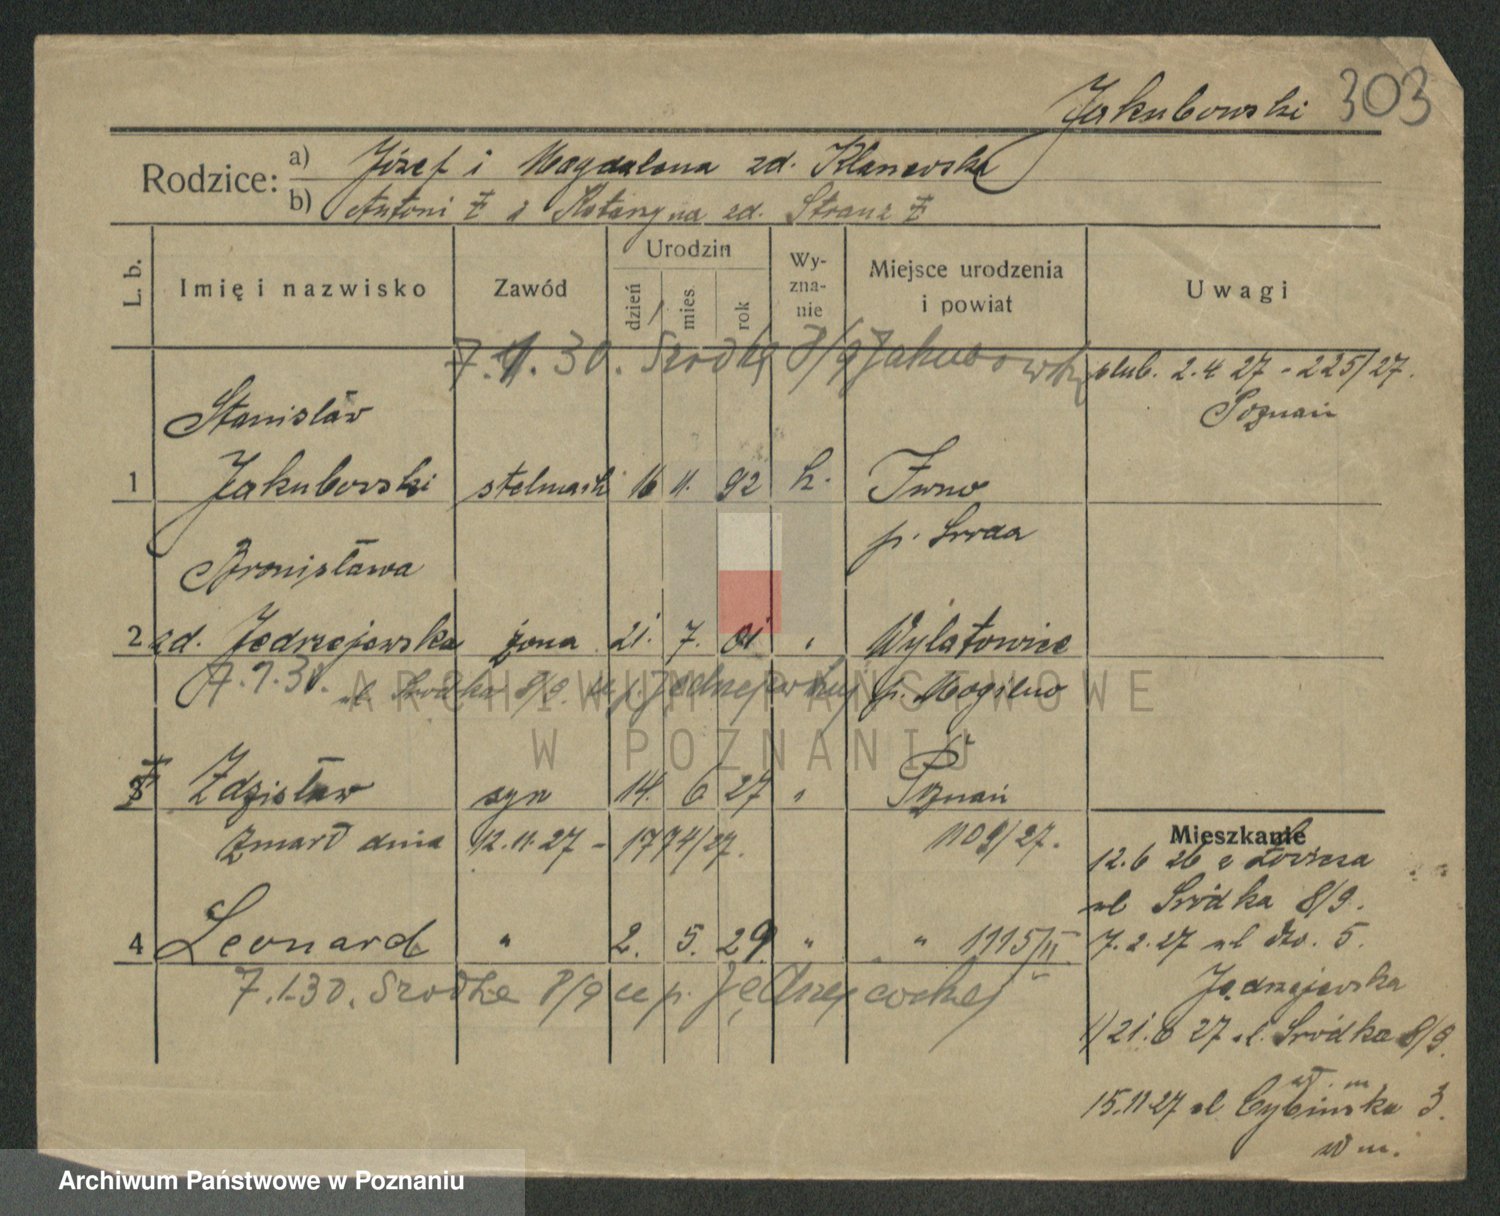 Jakubowski 303
Rodzice:
a) Józef i Magdalena zd. Klanowska
b) Antoni ‡ i Katarzyna zd. Stranz ‡
L. b.
Imię i nazwisko
Zawód
Urodzin
dzień
mies.
rok
Wy-
zna-
nie
Miejsce urodzenia
i powiat
Uwagi
7.1.30. Srodka 8/9 Jakubowski
ślub. 2.4 27 - 225/27.
Poznań
Stanisław
1 Jakubowski stelmach 16 11. 92 k. Iwno
p. Środa
Bronisława
2 zd. Jędrzejewska żona 21. 7. 01 " Wylatowice
7.1.30. ul. Śródka 8/9 u p. Jędrzejewskiej p. Mogilno
3 Zdzisław syn 14. 6 27 " Poznań
zmarł dnia 12.11.27 - 1774/27. 1109/27.
4 Leonard " 2. 5. 29. " " 1115/II
7.1.30. Srodka 8/9 u p. Jędrzejewskiej
Mieszkanie
12.6 26 z
ul Śródka 8/9.
7.2.27 ul 5.
Jędrzejewska
1) 21.6 27 ul. Śródka 8/9.
15.11.27 ul Cybińska 3.
w m.
ARCHIWUM PAŃSTWOWE
W POZNANIU
Archiwum Państwowe w Poznaniu